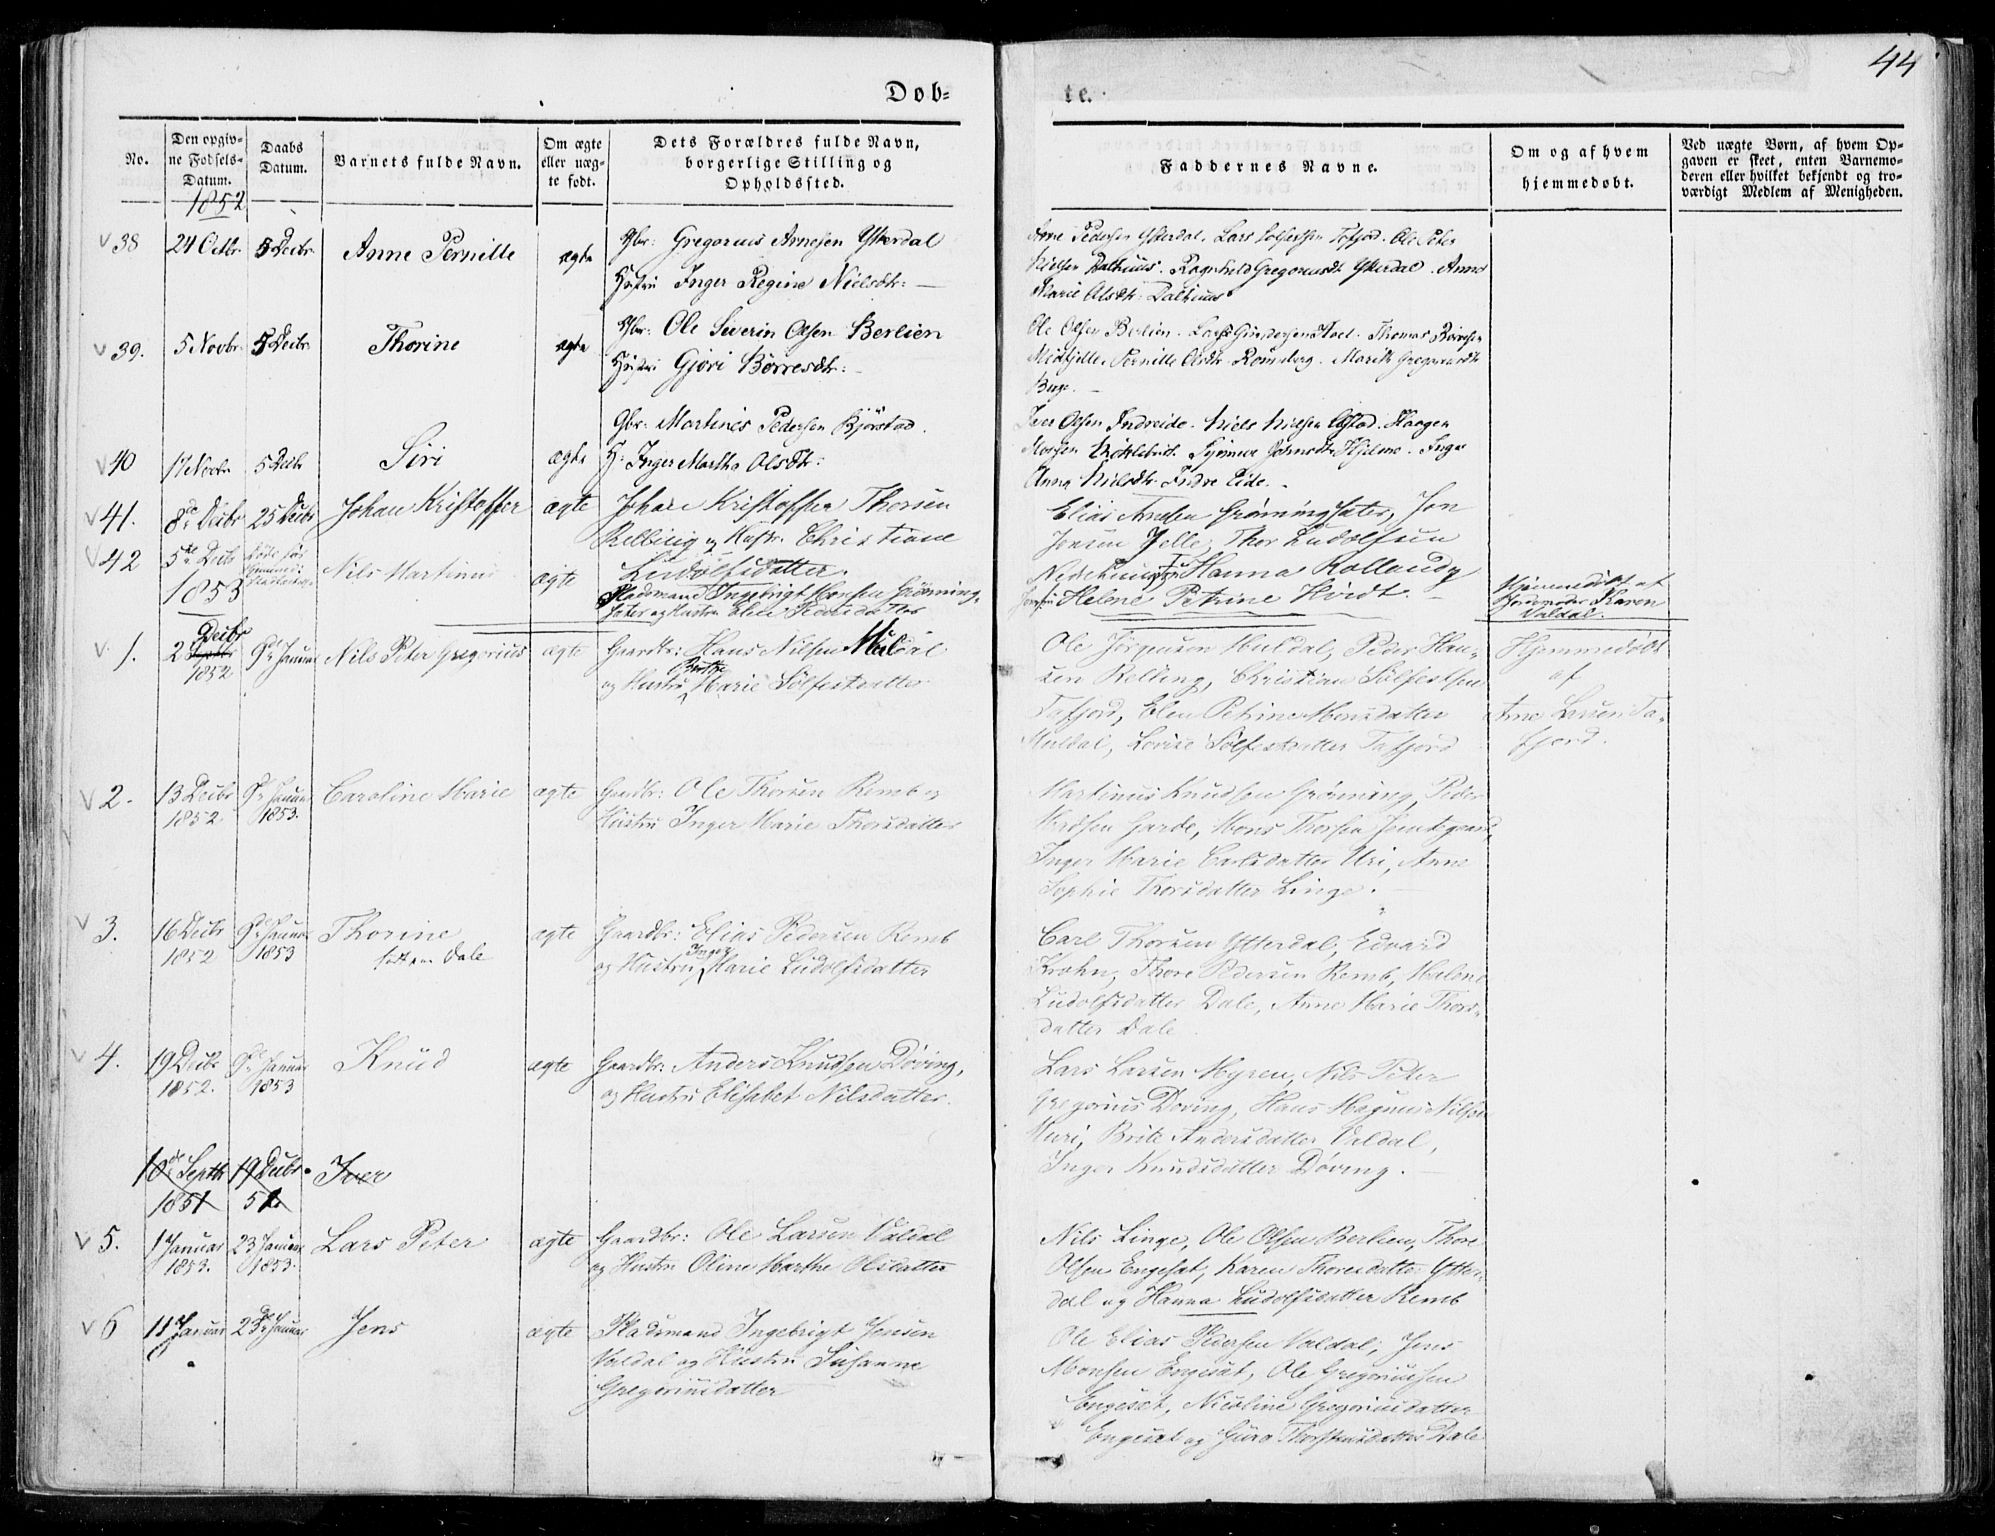 44
Dob=
te.
No.
Den opgiv=
ne Fødsels=
Datum.
Daabs
Datum.
Barnets fulde Navn.
Om ægte
eller uæg=
te født.
Dets Forældres fulde Navn,
borgerlige Stilling og
Opholdssted.
Faddernes Navne.
Om og af hvem
hiemmedøbt.
Ved uægte Børn, af hvem Op=
gaven er skeet, enten Barnemo=
deren eller hvilket bekjendt og tro=
værdigt Medlem af Menigheden.
1852
38 24 Octbr. 5 Decbr. Anne Pernille ægte Gbr: Gregorius Arnesen Ytterdal
Hustru Inger Regine Nielsdtr:
Arne Pedersen Ytterdal. Lars Tafjord. Ole Peter
Nielsen Dalhuus. Ragnhild Gregoriusdt Ytterdal. Anne
Marie Olsdtr. Dalhuus
39. 5 Novbr. 5 Decbr. Thorine ægte Gbr: Ole Severin Olsen Berlien
Hustru Gjøri Børresdtr:
Ole Olsen Berlien. Thomas Børresen
Pernille Olsdtr. Marith Gregoriusdtr
Berge.
40 17 Novbr 5 Decbr Siri ægte Gbr: Martinus Pedersen Bjørstad.
H: Inger Martha Olsdtr:
Iver Olsen Indreide. Niels Nielsen
Hjelme. Inger
Anna Nielsdtr. Indre Eide.
41. 8de Decbr 25 Decbr Johan Kristoffer ægte Johan Kristoffer Thorsen
Relling og Hustr. Christiane
Ludolfsdatter.
Elias Arnesen Grønningsæter, Jon
Jonsen Jelle, Thor Ludolfsen
Hanna Rollandy
Helene Petrine Hordt.
42 5te Decbr Nils Martinus ægte
Pladsmand Ingebrigt Monsen Grønning=
sæter og Hustru Elen Pedersdatter
Hjemmedøbt af
Jordemoder Karen
Valdal.
1853
1. 2 Decbr
1852 9de Januar Nils Peter Gregorius ægte Gaardbr: Hans Nilsen Muldal
og Hustru Berthe Marie Sølfestdatter
Ole Jørgensen Muldal, Peder Han=
sen Relling, Christian Sølfestsen
Tafjord, Elen Petrine Monsdatter
Muldal, Lovise Sølfestdatter Tafjord
Hjemmedøbt
af
Arne Larsen Ta=
fjord.
2. 13 Decbr
1852 9de Januar
1853. Caroline Marie ægte Gaardbr: Ole Thorsen Remb og
Hustru Inger Marie Thorsdatter
Martinus Knudsen Grønning, Peder
Garde, Mons Thorsen
Inger Marie Carlsdatter Uri, Anne
Sophie Thorsdatter Linge.
3. 16 Decbr
1852 9de Januar
1853 Thorine
Dale ægte Gaardbr: Elias Pedersen Remb
og Hustru Inger Marie Ludolfsdatter
Carl Thorsen Ytterdal, Edvard
Krohn, Thore Pedersen Remb, Malene
Ludolfsdatter Dale, Anne Marie Thors=
datter Dale.
4. 19 Decbr
1852. 9de Januar
1853 Knud ægte Gaardbr: Anders Knudsen Døving,
og Hustru Elisabet Nilsdatter.
Lars Larsen Myren, Nils Peter
Gregorius Døving, Hans Magnus Nilsen
Muri, Brite Andersdatter Valdal,
Inger Knudsdatter Døving.
10de Septbr
1851 19 Decbr.
51 Iver
5. 1 Januar
1853. 23 Januar
1853. Lars Peter ægte Gaardbr: Ole Larsen Valdal
og Hustru Oline Marthe Olsdatter
Nils Linge, Ole Olsen Berlien, Thore
Olsen Engeset, Karen Thoresdatter Ytter=
dal og Hanna Ludolfsdatter Remb
6 11 Januar 23de Januar Jens ægte Pladsmand Ingebrigt Jensen
Valdal og Hustru Susanne
Gregoriusdatter
Ole Elias Pedersen Valdal, Jens
Monsen Engeset, Ole Gregoriussen
Engeset, Nicoline Gregoriusdatter
Engeset og Guro Thorstensdatter Dale